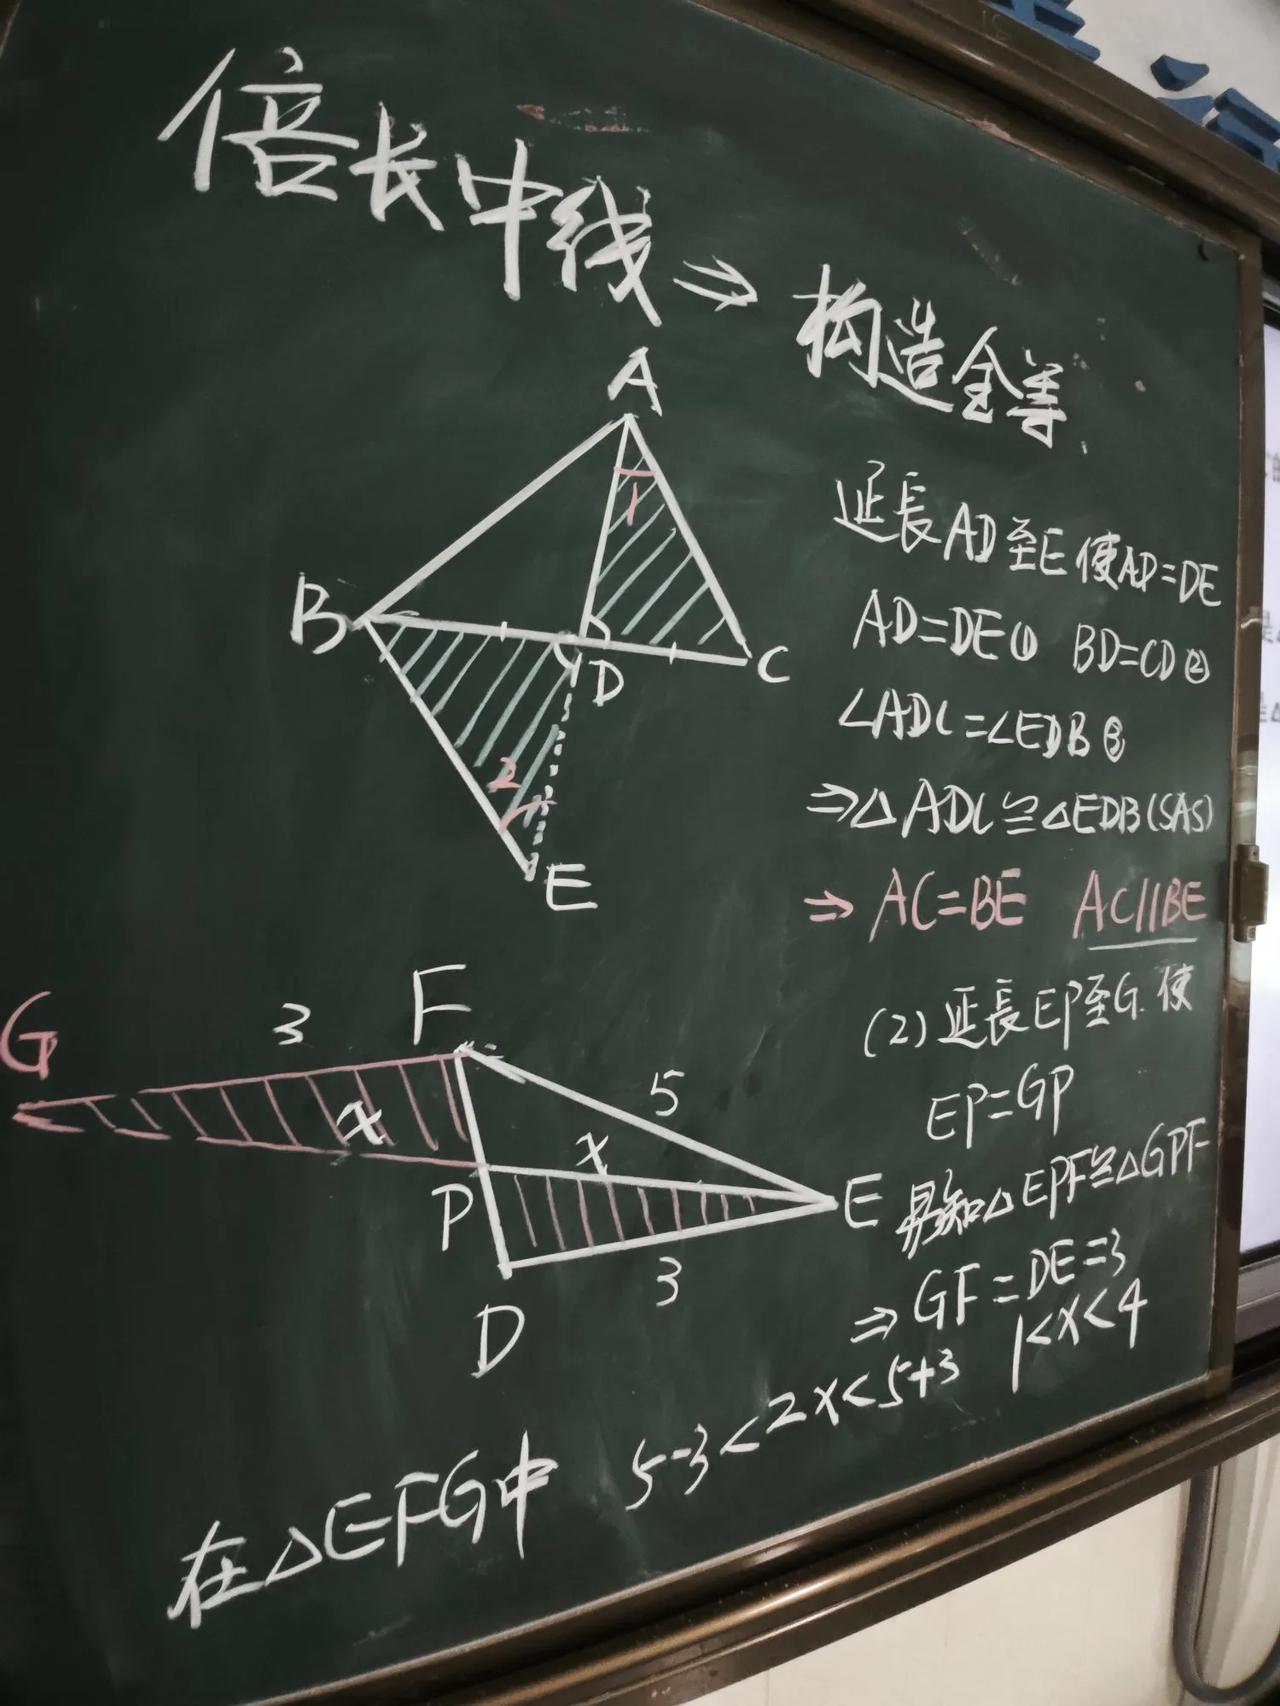 倍长中线 ⇒ 构造全等
A
1
B
D
C
2
E
延長AD至E 使AD=DE
AD=DE① BD=CD②
∠ADC=∠EDB③
⇒△ADC≌△EDB(SAS)
⇒ AC=BE AC∥BE
G
3
F
5
x
x
P
E
3
D
(2)延長EP至G.使
EP=GP
易知△EPF≌△GPF
⇒GF=DE=3
在△EFG中 5-3<2x<5+3 1<x<4